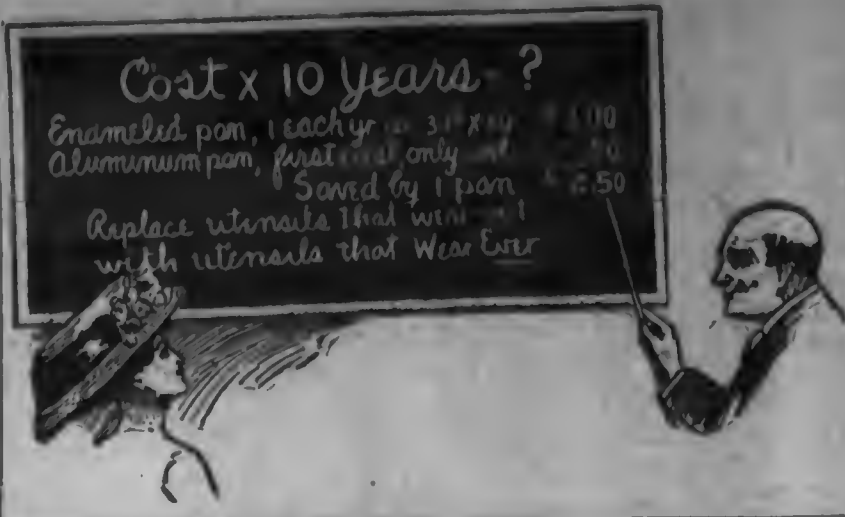 Cost x 10 Years - ?
Enameled pan, 1 each yr
Aluminum pan, first cost only
Saved by 1 pan $2.50
Replace utensils that wear out
with utensils that Wear Ever